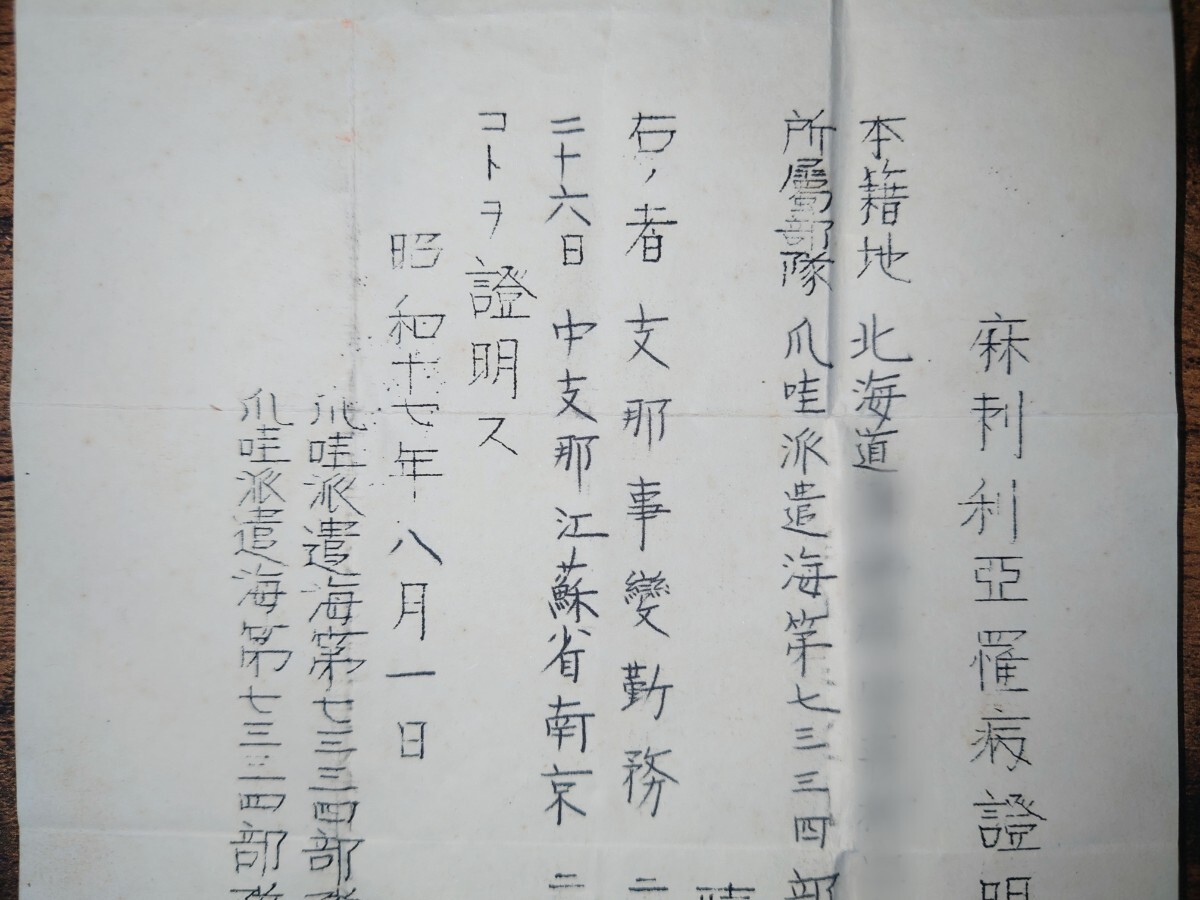 麻刺利亞罹病證明
本籍地 北海道
所屬部隊 爪哇派遣海第七三三四部
右ノ者 支那事變勤務 二
二十六日 中支那江蘇省南京 二
コトヲ證明ス
昭和十七年八月一日
爪哇派遣海第七三三四部隊
爪哇派遣海第七三三四部隊